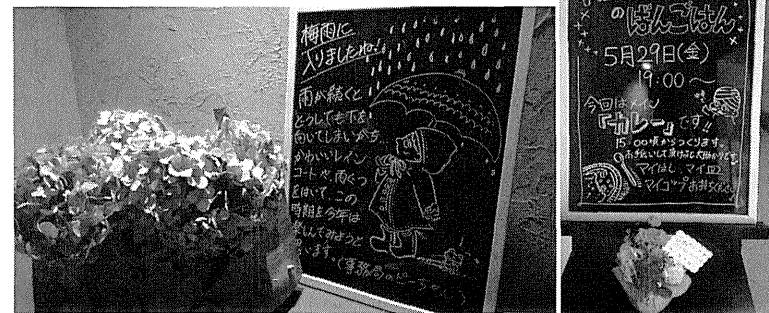 梅雨に
入りましたね!
雨が続くと
どうしても下を
向いてしまいがち
かわいいレイン
コートや、雨ぐつ
をはいて、この
時期を今年は
楽しんでみようと
思います。
(事務局の
のばんごはん
5月29日(金)
19:00〜
今回はメイン
『カレー』です!!
15:00頃からつくります
お手伝いして頂けると大助かりです
マイはし、マイ皿
マイコップ